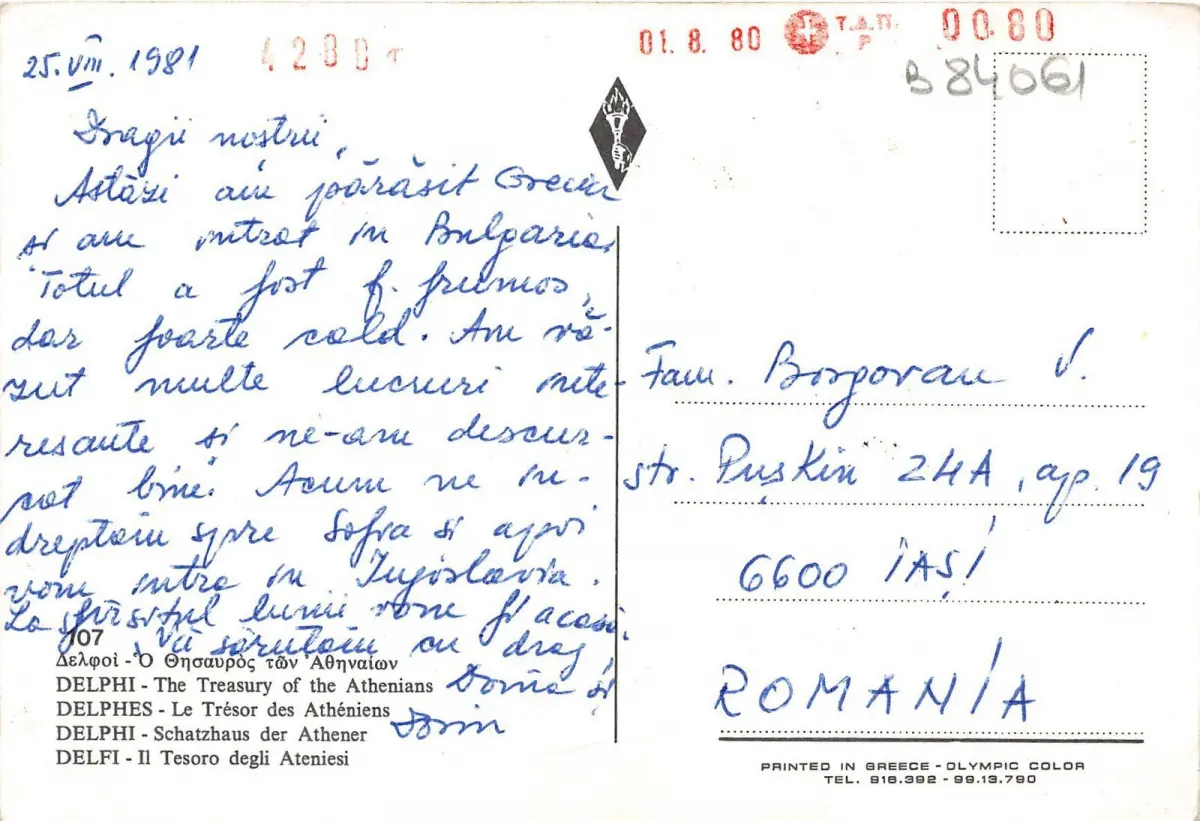 25.VIII.1981
4280
01.8.80
Τ.Δ.Π.
P
00.80
B 84061
Dragii noștri,
Astăzi am părăsit Grecia
și am intrat în Bulgaria.
Totul a fost f. frumos,
dar foarte cald. Am vă-
zut multe lucruri inte-
resante și ne-am descur-
cat bine. Acum ne în-
dreptăm spre Sofia și apoi
vom intra în Iugoslavia.
La sfîrșitul lunii vom fi acasă.
Vă sărutăm cu drag,
Doina și
Sorin
Fam. Borgovan V.
str. Pușkin 24A, ap. 19
6600 IAȘI
ROMANIA
107
Δελφοί - Ὁ Θησαυρὸς τῶν Ἀθηναίων
DELPHI - The Treasury of the Athenians
DELPHES - Le Trésor des Athéniens
DELPHI - Schatzhaus der Athener
DELFI - Il Tesoro degli Ateniesi
PRINTED IN GREECE - OLYMPIC COLOR
TEL. 918.392 - 99.13.790